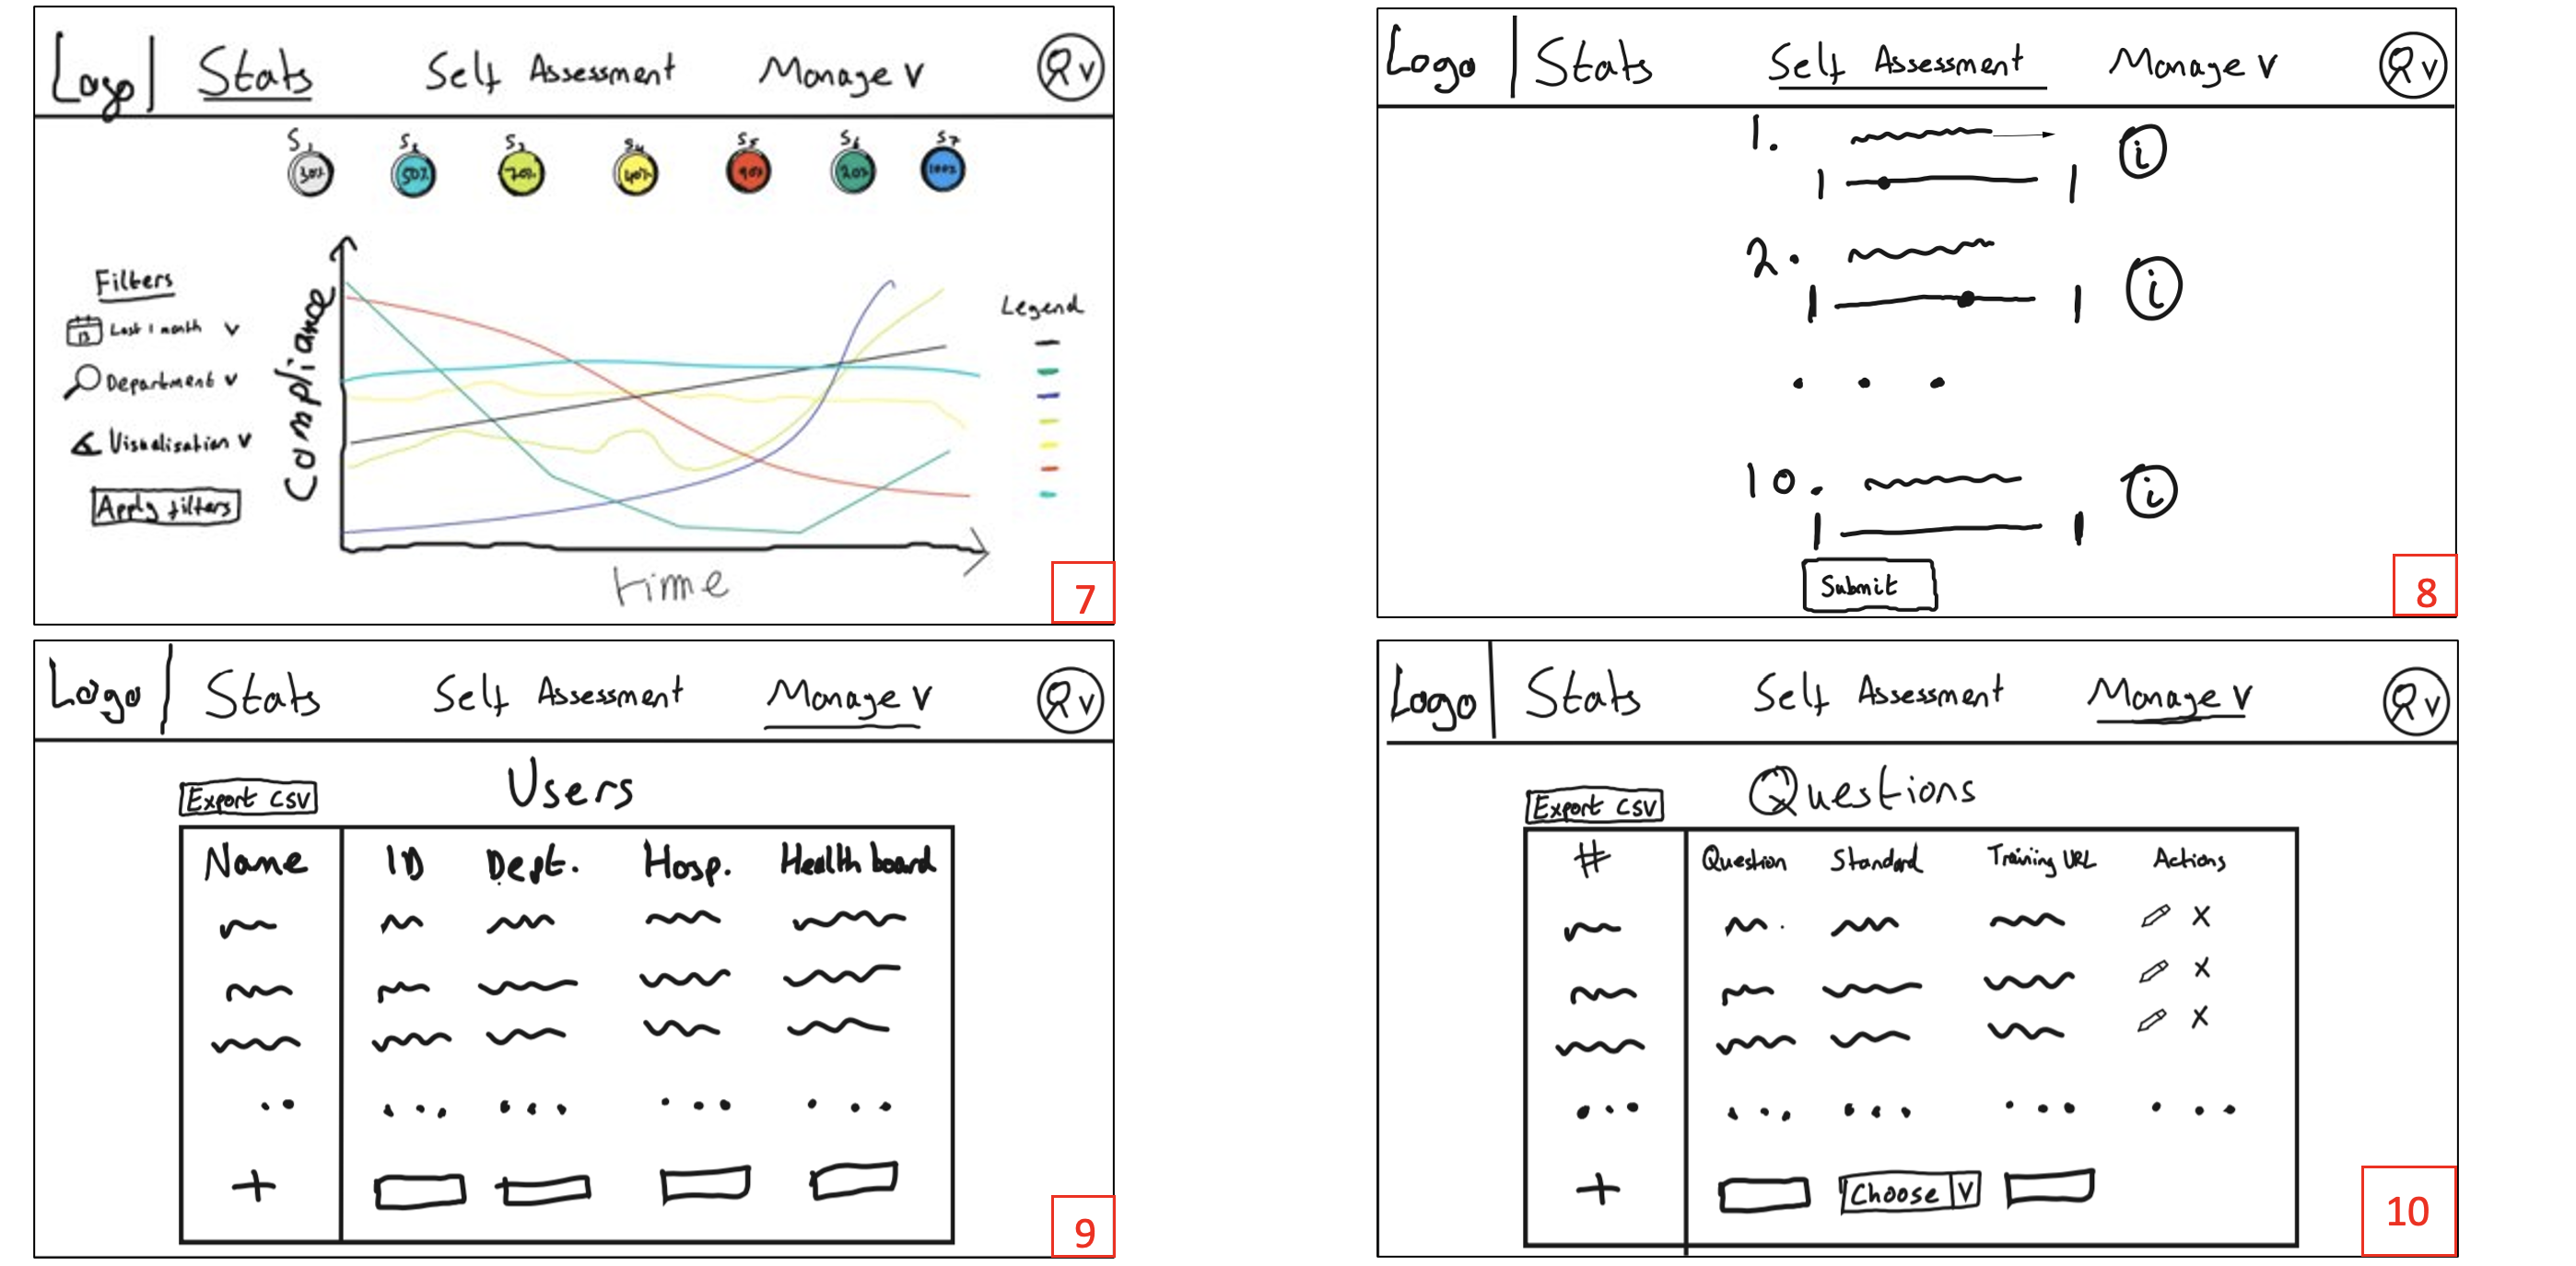 Logo Stats Self Assessment Manage v
S1 S2 S3 S4 S5 S6 S7
30% 50% 70% 40% 90% 20% 100%
Filters
13 Last 1 month v
Department v
Visualisation v
Apply filters
Compliance
time
Legend
7
Logo Stats Self Assessment Manage v
1. i
2. i
...
10. i
Submit
8
Logo Stats Self Assessment Manage v
Export CSV Users
Name ID Dept. Hosp. Health board
+
9
Logo Stats Self Assessment Manage v
Export CSV Questions
# Question Standard Training URL Actions
X
X
X
+ Choose v
10